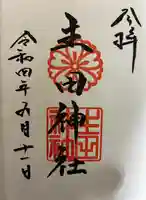 奉拝
田神社
令和四年五月十一日